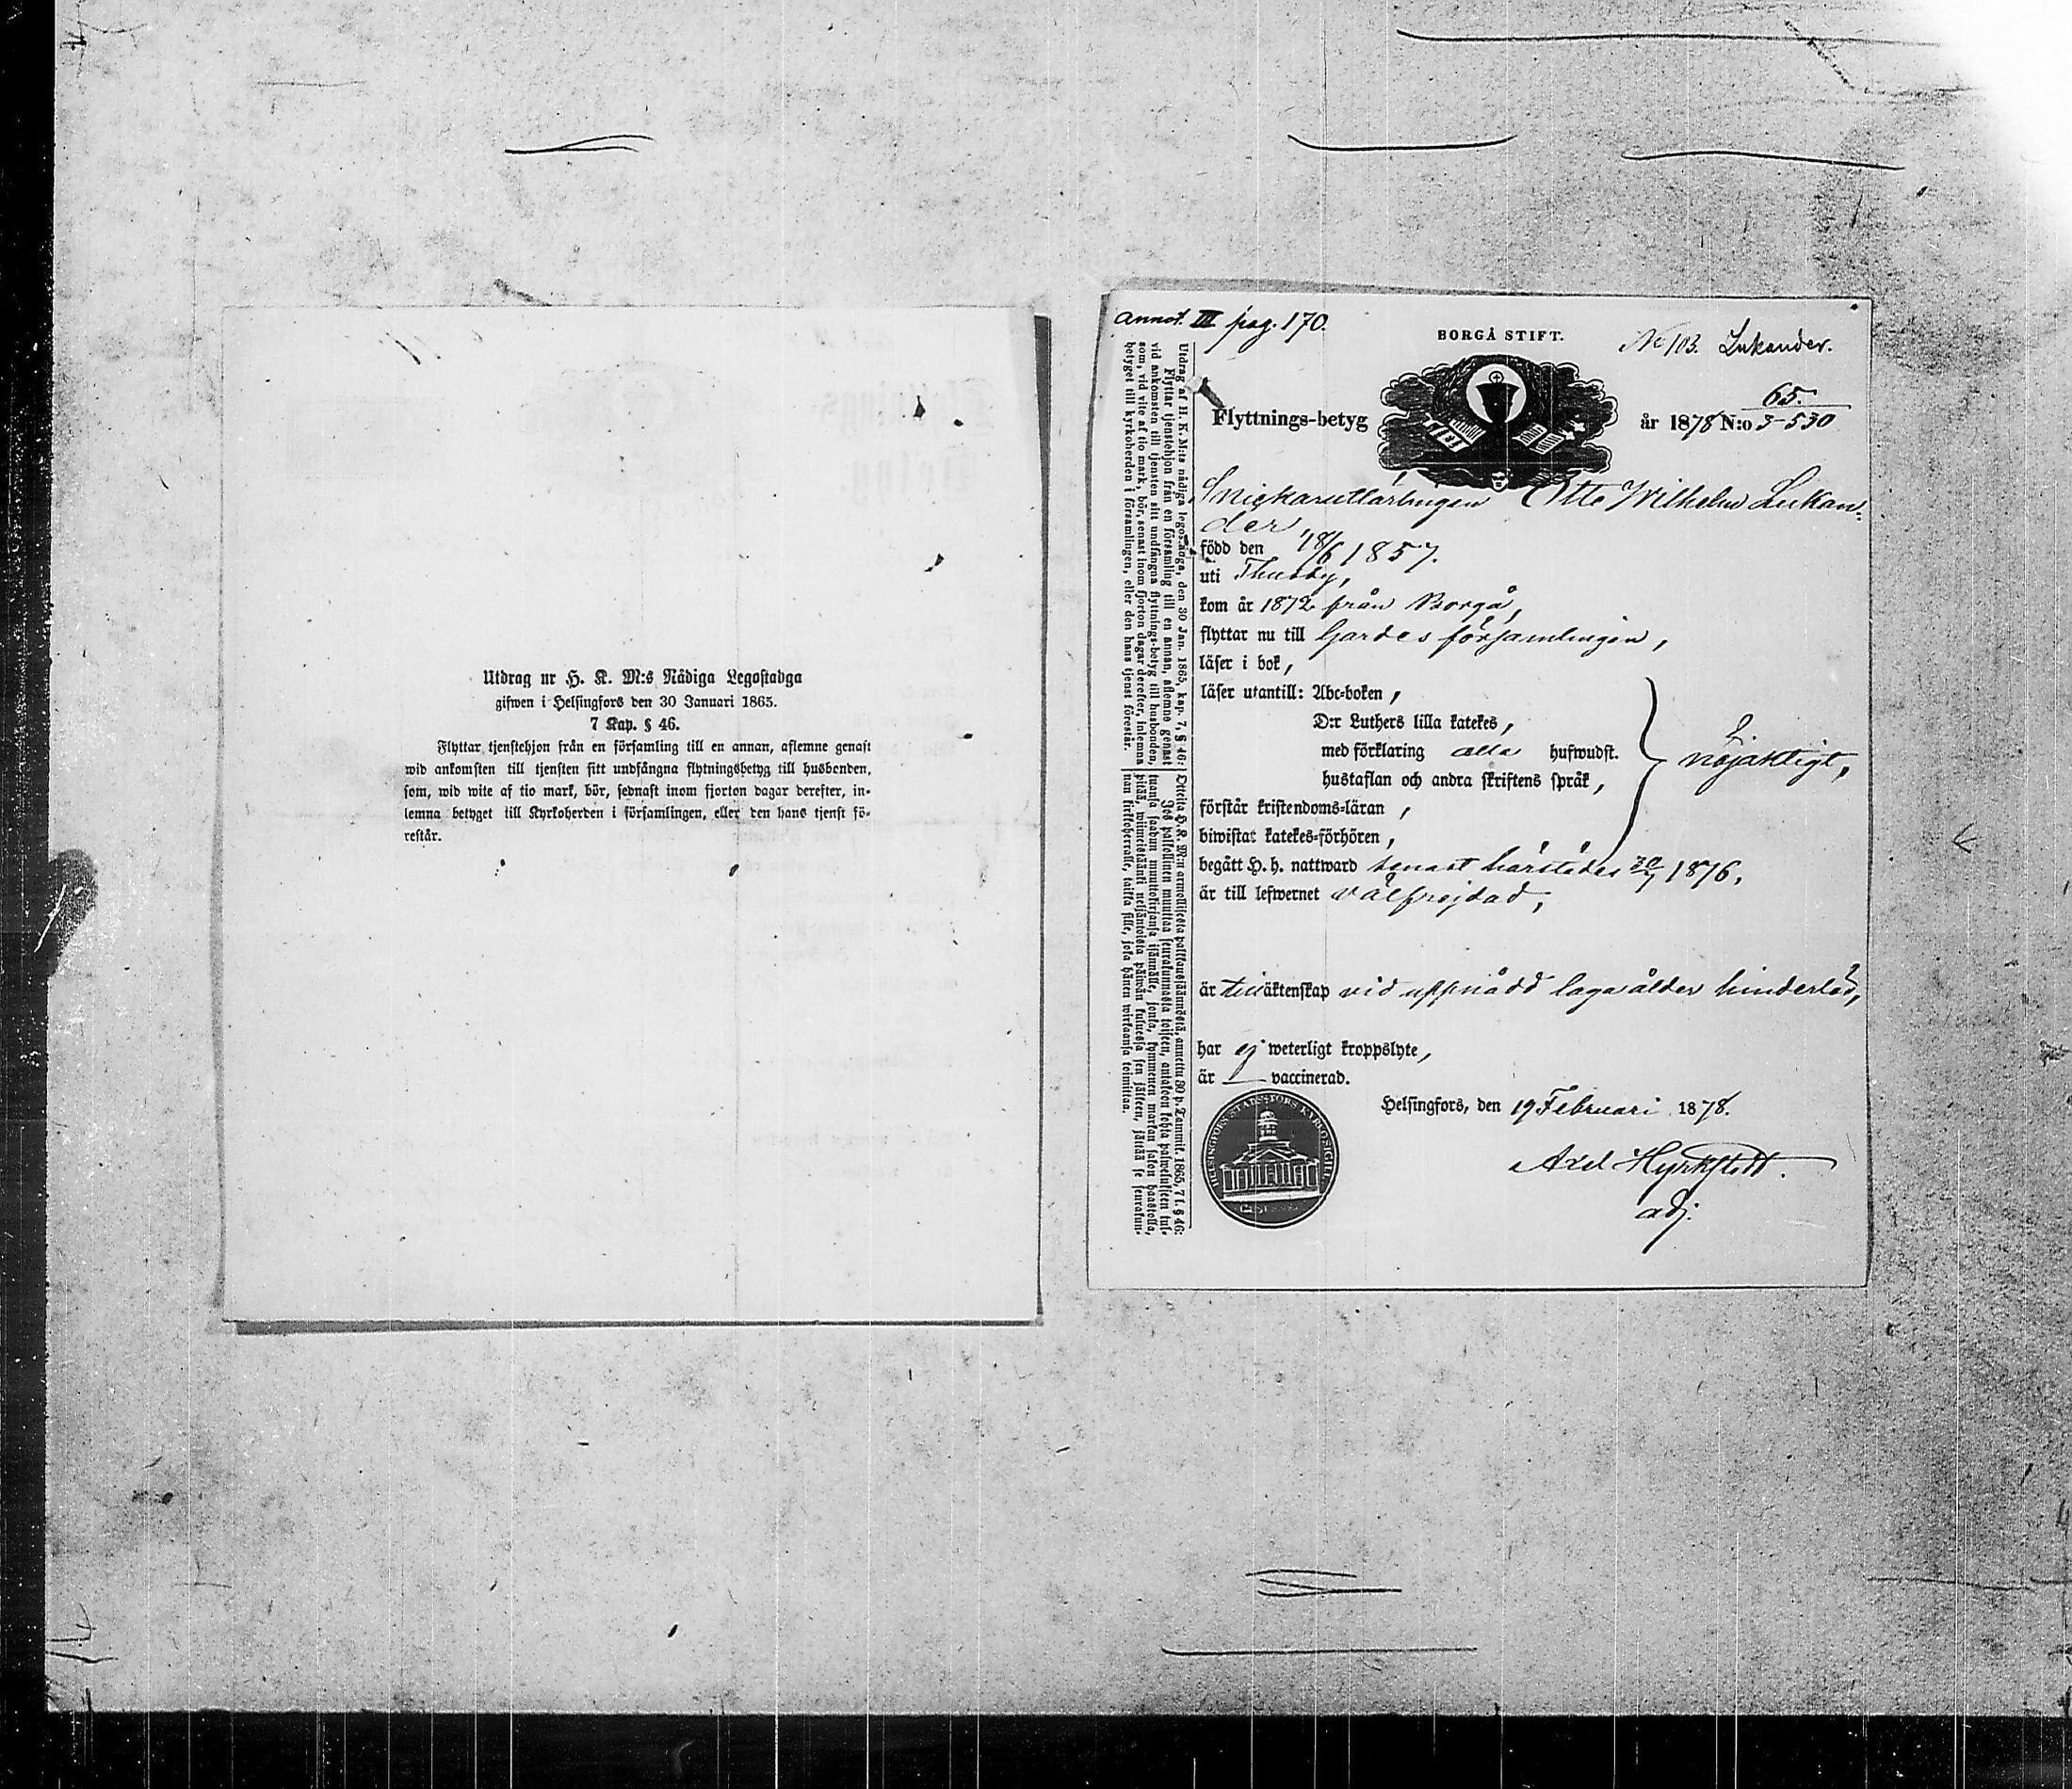 Utdrag ur H. K. M:s Nådiga Legostadga
gifwen i Helsingfors den 30 Januari 1865.
7 Kap. § 46.
Flyttar tjenstehjon från en församling till en annan, aflemne genast
wid ankomsten till tjensten sitt undfångna flytningsbetyg till husbonden,
som, wid wite af tio mark, bör, sednast inom fjorton dagar derefter, in-
lemna betyget till Kyrkoherden i församlingen, eller den hans tjenst fö-
restår.
annot. III pag. 170.
BORGÅ STIFT.
No 103. Lukander.
65.
Flyttnings-betyg
år 1878 N:o 3-530
Utdrag af H. K. M:ts nådiga legostadga, den 30 Jan. 1865, kap. 7, § 46:
Flyttar tjenstehjon från en församling till en annan, aflemne genast
vid ankomsten till tjensten sitt undfångna flyttnings-betyg till husbonden,
som, vid vite af tio mark, bör, senast inom fjorton dagar derefter, inlemna
betyget till kyrkoherden i församlingen, eller den hans tjenst förestår.
Otteita H. K. M:n armollisesta palkkaussäännöstä, annettu 30 p. Tammik. 1865, 7 l. § 46:
Jos palkollinen muuttaa seurakunnasta toiseen, antakoon kohta palwelukseen tul-
tuansa saadun muuttokirjansa isännälle, jonka, kymmenen markan sakon haastolla,
pitää, wiimeistäänki neljäntoista päiwän kuluessa sen jälkeen, jättää se seurakun-
nan kirkkoherralle, taikka sille, joka hänen wirkaansa toimittaa.
Snickareutlärlingen Otto Wilhelm Lukan-
der,
född den 18/6 1857.
uti Thusby,
kom år 1872 från Borgå,
flyttar nu till Gardes församlingen,
läser i bok,
läser utantill: Abc-boken,
D:r Luthers lilla katekes,
med förklaring alla hufwudst.
hustaflan och andra skriftens språk,
nöjaktigt,
förstår kristendoms-läran,
biwistat katekes-förhören,
begått H. h. nattward senast härstädes 30/7 1876,
är till lefwernet välfrejdad,
är till äktenskap vid uppnådd laga ålder hinderlös,
har ej weterligt kroppslyte,
är — vaccinerad.
Helsingfors, den 19 Februari 1878.
Axel Hyrkstedt.
adj.